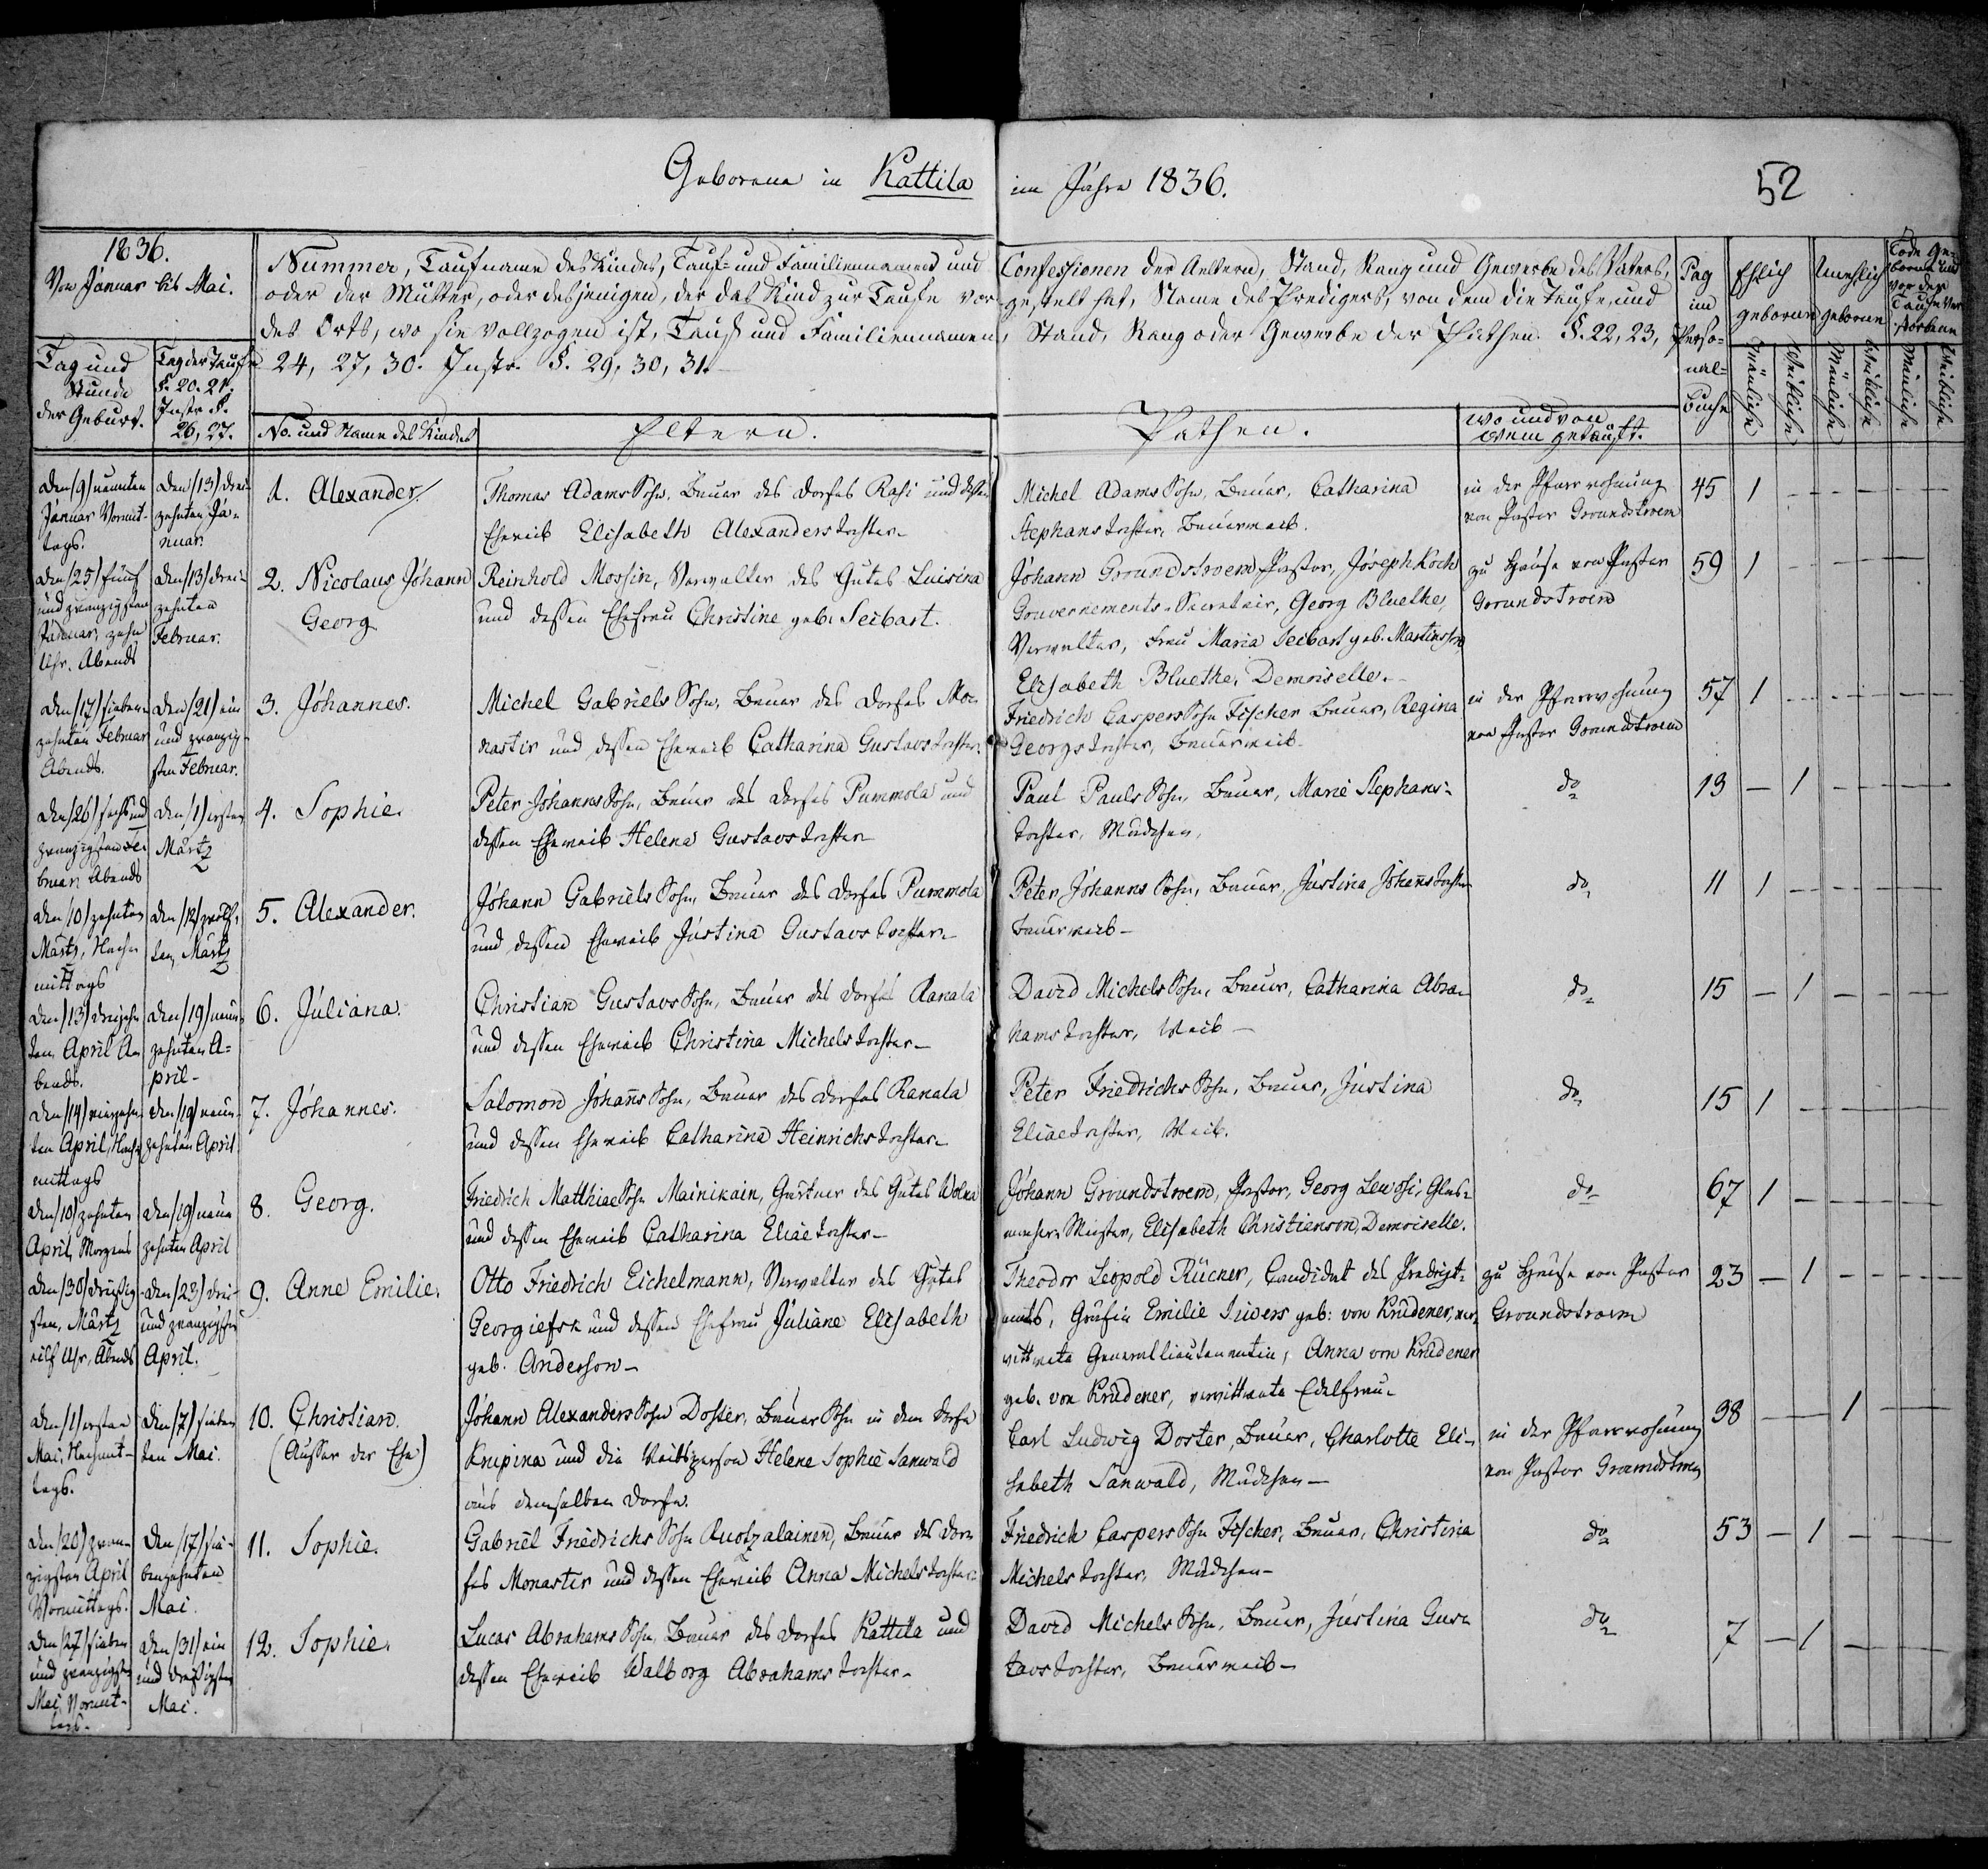 Geborene in Kattila im Jahre 1836.
52
1836.
Von Januar bis Mai.
Tag und
Stunde
der Geburt.
Tag der Taufe
§. 20. 21.
Instr. §.
26, 27.
Nummer, Taufname des Kindes, Tauf- und Familiennamen und Confessionen der Aeltern, Stand, Rang und Gewerbe des Vaters,
oder der Mutter, oder desjenigen, der das Kind zur Taufe vorgestelt hat, Name des Predigers, von dem die Taufe, und
des Orts, wo sie vollzogen ist, Tauf und Familiennamen, Stand, Rang oder Gewerbe der Pathen. §. 22, 23,
24, 27, 30. Instr. §. 29, 30, 31.
No. und Name des Kindes
Eltern.
Pathen.
wo und von
wem getauft.
Pag
im
Perso-
nal-
Buche
Ehlich
geboren
Unehlich
geboren
Tode Ge-
borene und
vor der
Taufe Ver-
storbene
Mänliche
Weibliche
Mänliche
Weibliche
Mänliche
Weibliche
den /9/ neunten
Januar Vormit-
tags.
den /13/ drei-
zehnten Ja-
nuar.
1. Alexander.
Thomas Adams Sohn, Bauer des Dorfes Rasi und dessen
Eheweib Elisabeth Alexanders Tochter
Michel Adams Sohn, Bauer, Catharina
Stephans Tochter, Bauerweib.
in der Pfarrwohnung
von Pastor Groundstroem
45 1
den /25/ fünf
und zwanzigsten
Januar, zehn
Uhr. Abends
den /13/ drei-
zehnten
Februar.
2. Nicolaus Johann
Georg
Reinhold Mossin, Verwalter des Gutes Luisina
und dessen Ehefrau Christine geb. Seibart.
Johann Groundstroem Pastor, Joseph Koch
Gouvernements-Secretair, Georg Bluethe,
Verwalter, Frau Maria Seibart geb. Martinson
Elisabeth Bluethe, Demoiselle.
zu Hause von Pastor
Groundstroem
59 1
den /17/ sieben-
zehnten Februar
Abends.
den /21/ ein
und zwanzig-
sten Februar.
3. Johannes.
Michel Gabriels Sohn, Bauer des Dorfes Mo-
nastir und dessen Eheweib Catharina Gustavs Tochter
Friedrich Caspers Sohn Fischer Bauer, Regina
Georgs Tochter, Bauerweib
in der Pfarrwohnung
von Pastor Groundstroem
57 1
den /26/ sechs und
zwanzigsten Fe-
bruar Abends
den /1/ ersten
Märtz
4. Sophie.
Peter Johanns Sohn, Bauer des Dorfes Pummola und
dessen Eheweib Helena Gustavs Tochter
Paul Pauls Sohn, Bauer, Marie Stephans-
Tochter, Mädchen,
do
13 — 1
den /10/ zehnten
Märtz, Nach-
mittags
den /12/ zwölf-
ten Märtz
5. Alexander.
Johann Gabriels Sohn, Bauer des Dorfes Pummola
und dessen Eheweib Justina Gustavs Tochter
Peter Johanns Sohn, Bauer, Justina Johanns Tochter
Bauerweib
do
11 1
den /13/ dreizehn-
ten April A-
bends.
den /19/ neun-
zehnten A-
pril
6. Juliana.
Christian Gustavs Sohn, Bauer des Dorfes Ranala
und dessen Eheweib Christina Michels Tochter
David Michels Sohn, Bauer, Catharina Abra-
hams Tochter, Weib
do
15 — 1
den /14/ vierzehn-
ten April, Nach-
mittags
den /19/ neun-
zehnten April
7. Johannes.
Salomon Johanns Sohn, Bauer des Dorfes Ranala
und dessen Eheweib Catharina Heinrichs Tochter
Peter Friedrichs Sohn, Bauer, Justina
Eliae Tochter, Weib.
do
15 1
den /10/ zehnten
April, Morgens
den /19/ neun
zehnten April
8. Georg.
Friedrich Matthiae Sohn Mainikain, Gärtner des Gutes Wolna
und dessen Eheweib Catharina Eliae Tochter
Johann Groundstroem, Pastor, Georg
Meister, Elisabeth Christierson, Demoiselle.
do
67 1
den /30/ dreißig-
sten, Märtz
eilf Uhr, Abends
den /23/ drei
und zwanzigsten
April.
9. Anne Emilie.
Otto Friedrich Eichelmann, Verwalter des Gutes
Georgiefsk und dessen Ehefrau Juliane Elisabeth
geb. Anderson
Theodor Leopold Rücner, Candidat des Predigt-
amts, Gräfin Emilie Siwers geb: von Krüdener, ver-
wittwete Generallieutenantin, Anna von Krüdener
geb. von Krüdener, verwittwete Edelfrau
zu Hause von Pastor
Groundstroem
23 — 1
den /1/ ersten
Mai, Nachmit-
tags.
den /7/ sieben
ten Mai.
10. Christian.
(Ausser der Ehe)
Johann Alexanders Sohn Doster, Bauer Sohn in dem Dorfe
Krupina und die Weibsperson Helene Sophie Sanwald
aus demselben Dorfe.
Carl Ludwig Doster, Bauer, Charlotte Eli-
sabeth Sanwald, Mädchen
in der Pfarrwohnung
von Pastor Groundstroem
98 — — 1
den /20/ zwan-
zigsten April
Vormittags.
den /17/ sie-
benzehnten
Mai.
11. Sophie.
Gabriel Friedrichs Sohn Ruotzalainen, Bauer des Dor-
fes Monastir und dessen Eheweib Anna Michels Tochter
Friedrich Caspers Sohn Fischer, Bauer, Christina
Michels Tochter, Mädchen
do
53 — 1
den /27/ sieben
und zwanzigsten
Mai, Vormit-
tags.
den /31/ ein
und dreißigsten
Mai.
12. Sophie.
Lucas Abrahams Sohn, Bauer des Dorfes Kattila und
dessen Eheweib Walborg Abrahams Tochter
David Michels Sohn, Bauer, Justina Gus-
tavs Tochter, Bauerweib
do
7 — 1